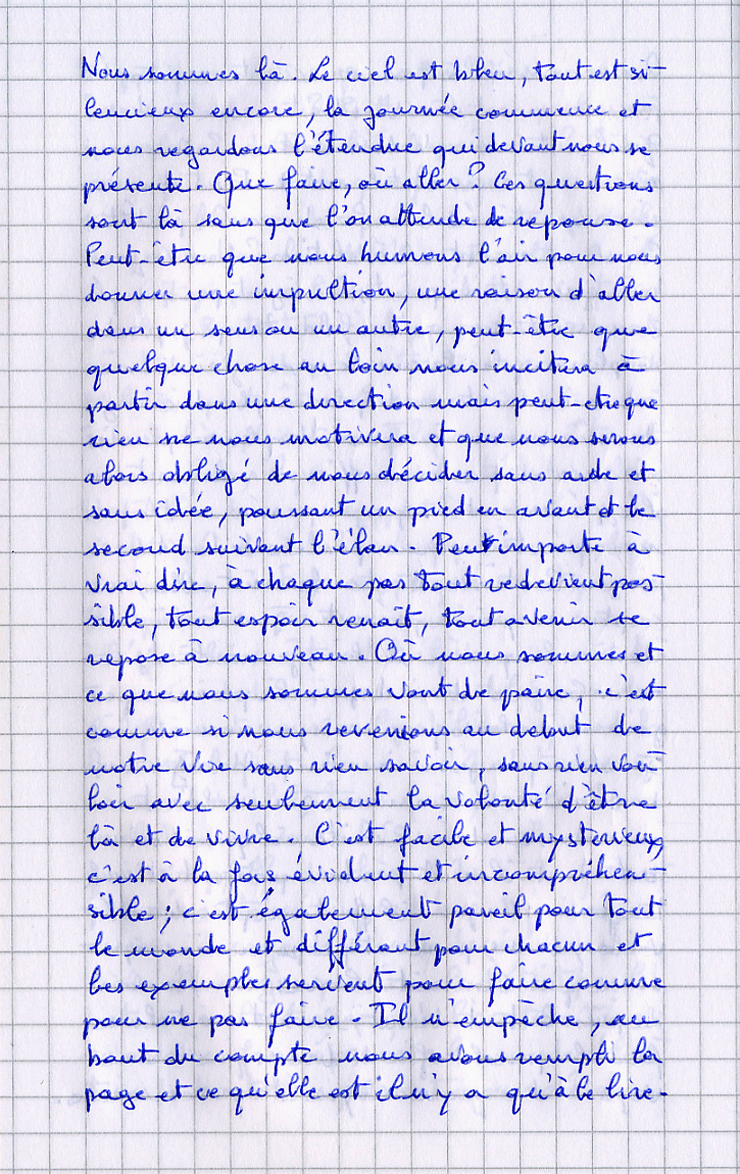 Nous sommes là. Le ciel est bleu, tout est si-
lencieux encore, la journée commence et
nous regardons l'étendue qui devant nous se
présente. Que faire, où aller? Ces questions
sont là sans que l'on attende de reponse.
Peut-être que nous humons l'air pour nous
donner une impultion, une raison d'aller
dans un sens ou un autre, peut-être que
quelque chose au loin nous incitera à
partir dans une direction mais peut-etre que
rien ne nous motivera et que nous serons
alors obligé de nous décider sans aide et
sans idée, poussant un pied en avant et le
second suivant l'élan. Peu importe à
vrai dire, à chaque pas tout redevient pos-
sible, tout espoir renait, tout avenir se
repose à nouveau. Où nous sommes et
ce que nous sommes vont de paire, c'est
comme si nous revenions au debut de
notre vie sans rien savoir, sans rien vou-
loir avec seulement la volonté d'être
là et de vivre. C'est facile et mysterieux,
c'est à la fois évident et incompréhen-
sible ; c'est également pareil pour tout
le monde et différent pour chacun et
les exemples servent pour faire comme
pour ne pas faire. Il n'empèche, au
bout du compte nous avons rempli la
page et ce qu'elle est il n'y a qu'à le lire.